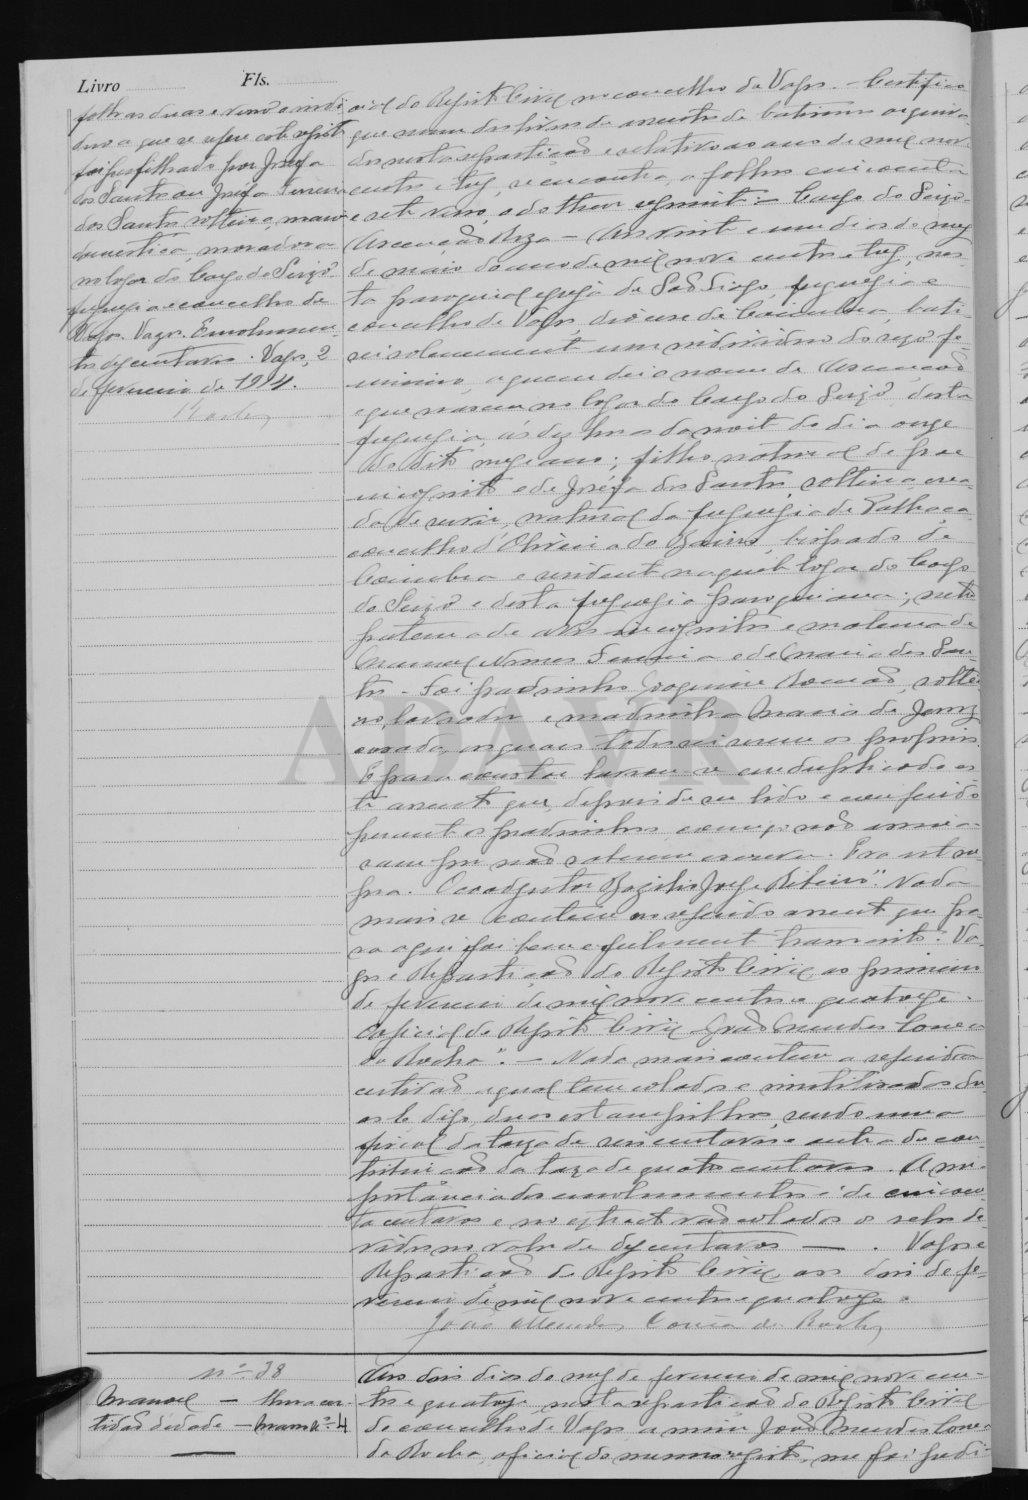 Livro Fls.
folhas duas e verso o indi-
duo a que se refere este registo
foi perfilhado por Josefa
dos Santos ou Josefa Ferreira
dos Santos, solteira, maior
domestica, moradora
no logar do Cargo do Seixo
freguesia e concelho de
Vagos. Vagos. Emolumen-
tos dez centavos. Vagos, 2
de fevereiro de 1914.
Rocha
cial do Registo Civil no concelho de Vagos. — Certifico
que num dos livros de assentos de batismo arquiva-
dos nesta repartição e relativo ao ano de mil nove
centos e tres, se encontra, a folhas cincoenta
e sete verso, o do theor seguinte: — Cargo do Seixo
Ascenção Roza — Aos vinte e um dias do mez
de maio do anno de mil nove centos e tres, nes-
ta paroquial egreja de São Tiago, freguesia e
concelho de Vagos, diocese de Coimbra, bati-
sei solemnemente um individuo do sexo fe-
minino, a quem dei o nome de Ascenção
e que nasceu no logar do Cargo do Seixo, desta
freguesia, ás dez horas da noite do dia onze
do dito mez e ano; filho natural de pae
incognito e de Josefa dos Santos, solteira, crea-
da de servir, natural da freguesia de Palhaça
concelho d'Oliveira do Bairro, bispado de
Coimbra e residente naquele logar do Cargo
do Seixo e desta freguesia paroquiana; neto
paterno de avós incognitos e materno de
Manoel Nunes Ferreira e de Maria dos San-
tos - Foi padrinho Joaquim Romão, soltei-
ro, lavrador e madrinha Maria de Jesus
casada, os quais todos sei serem os proprios.
E para constar lavrou-se em duplicado es-
te assento que, depois de ser lido e conferido
perante os padrinhos comigo não assina-
ram por não saberem escrever. Era ut su-
pra. O coadjutor Bazilio Jorge Ribeiro". Nada
mais se contem no referido assento que pa-
ra aqui foi bem e fielmente transcrito. Va-
gos e Repartição do Registo Civil, ao primeiro
de fevereiro de mil nove centos e quatorze.
O oficial do Registo Civil João Mendes Correia
da Rocha". — Nada mais contem a referida
certidão a qual tem colados e inutilisados du-
as e digo, duas estampilhas, sendo uma
fiscal da taxa de seis centavos e outra de con-
tribuição da taxa de quatro centavos. A im-
portancia dos emolumentos é de cincoen-
ta centavos e no extracto vão colados os selos de-
vidos no valor de dez centavos — . Vagos e
Repartição do Registo Civil, aos dois de fe-
vereiro de mil nove centos e quatorze.
João Mendes Correia da Rocha
ADAVR
nº 38
Manoel — Uma cer-
tidão d'edade — Masso nº 4
Aos dois dias do mez de fevereiro de mil nove cen-
tos e quatorze nesta repartição do Registo Civil
do concelho de Vagos a mim João Mendes Correia
da Rocha, oficial do mesmo registo, me foi pedi-